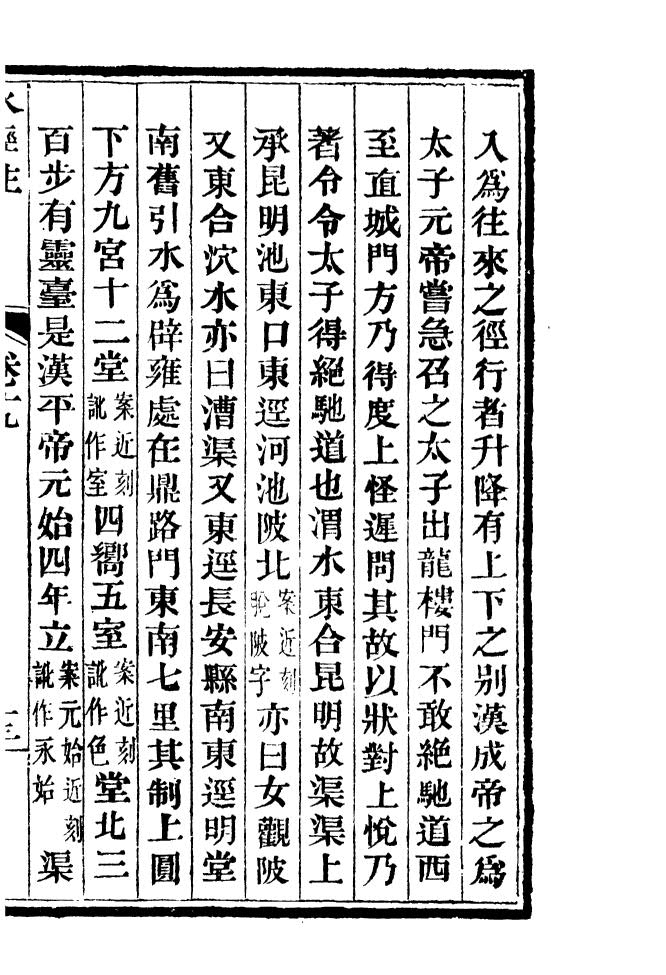 入爲往來之徑行者升降有上下之別漢成帝之爲
太子元帝嘗急召之太子出龍樓門不敢絕馳道西
至直城門方乃得度上怪遲問其故以狀對上悅乃
著令令太子得絕馳道也渭水東合昆明故渠渠上
承昆明池東口東逕河池陂北案近刻脫陂字亦曰女觀陂
又東合沇水亦曰漕渠又東逕長安縣南東逕明堂
南舊引水爲辟雍處在鼎路門東南七里其制上圓
下方九宮十二堂案近刻訛作室四嚮五室案近刻訛作色堂北三
百步有靈臺是漢平帝元始四年立案元始近刻訛作永始渠
水經注 卷十九 十三